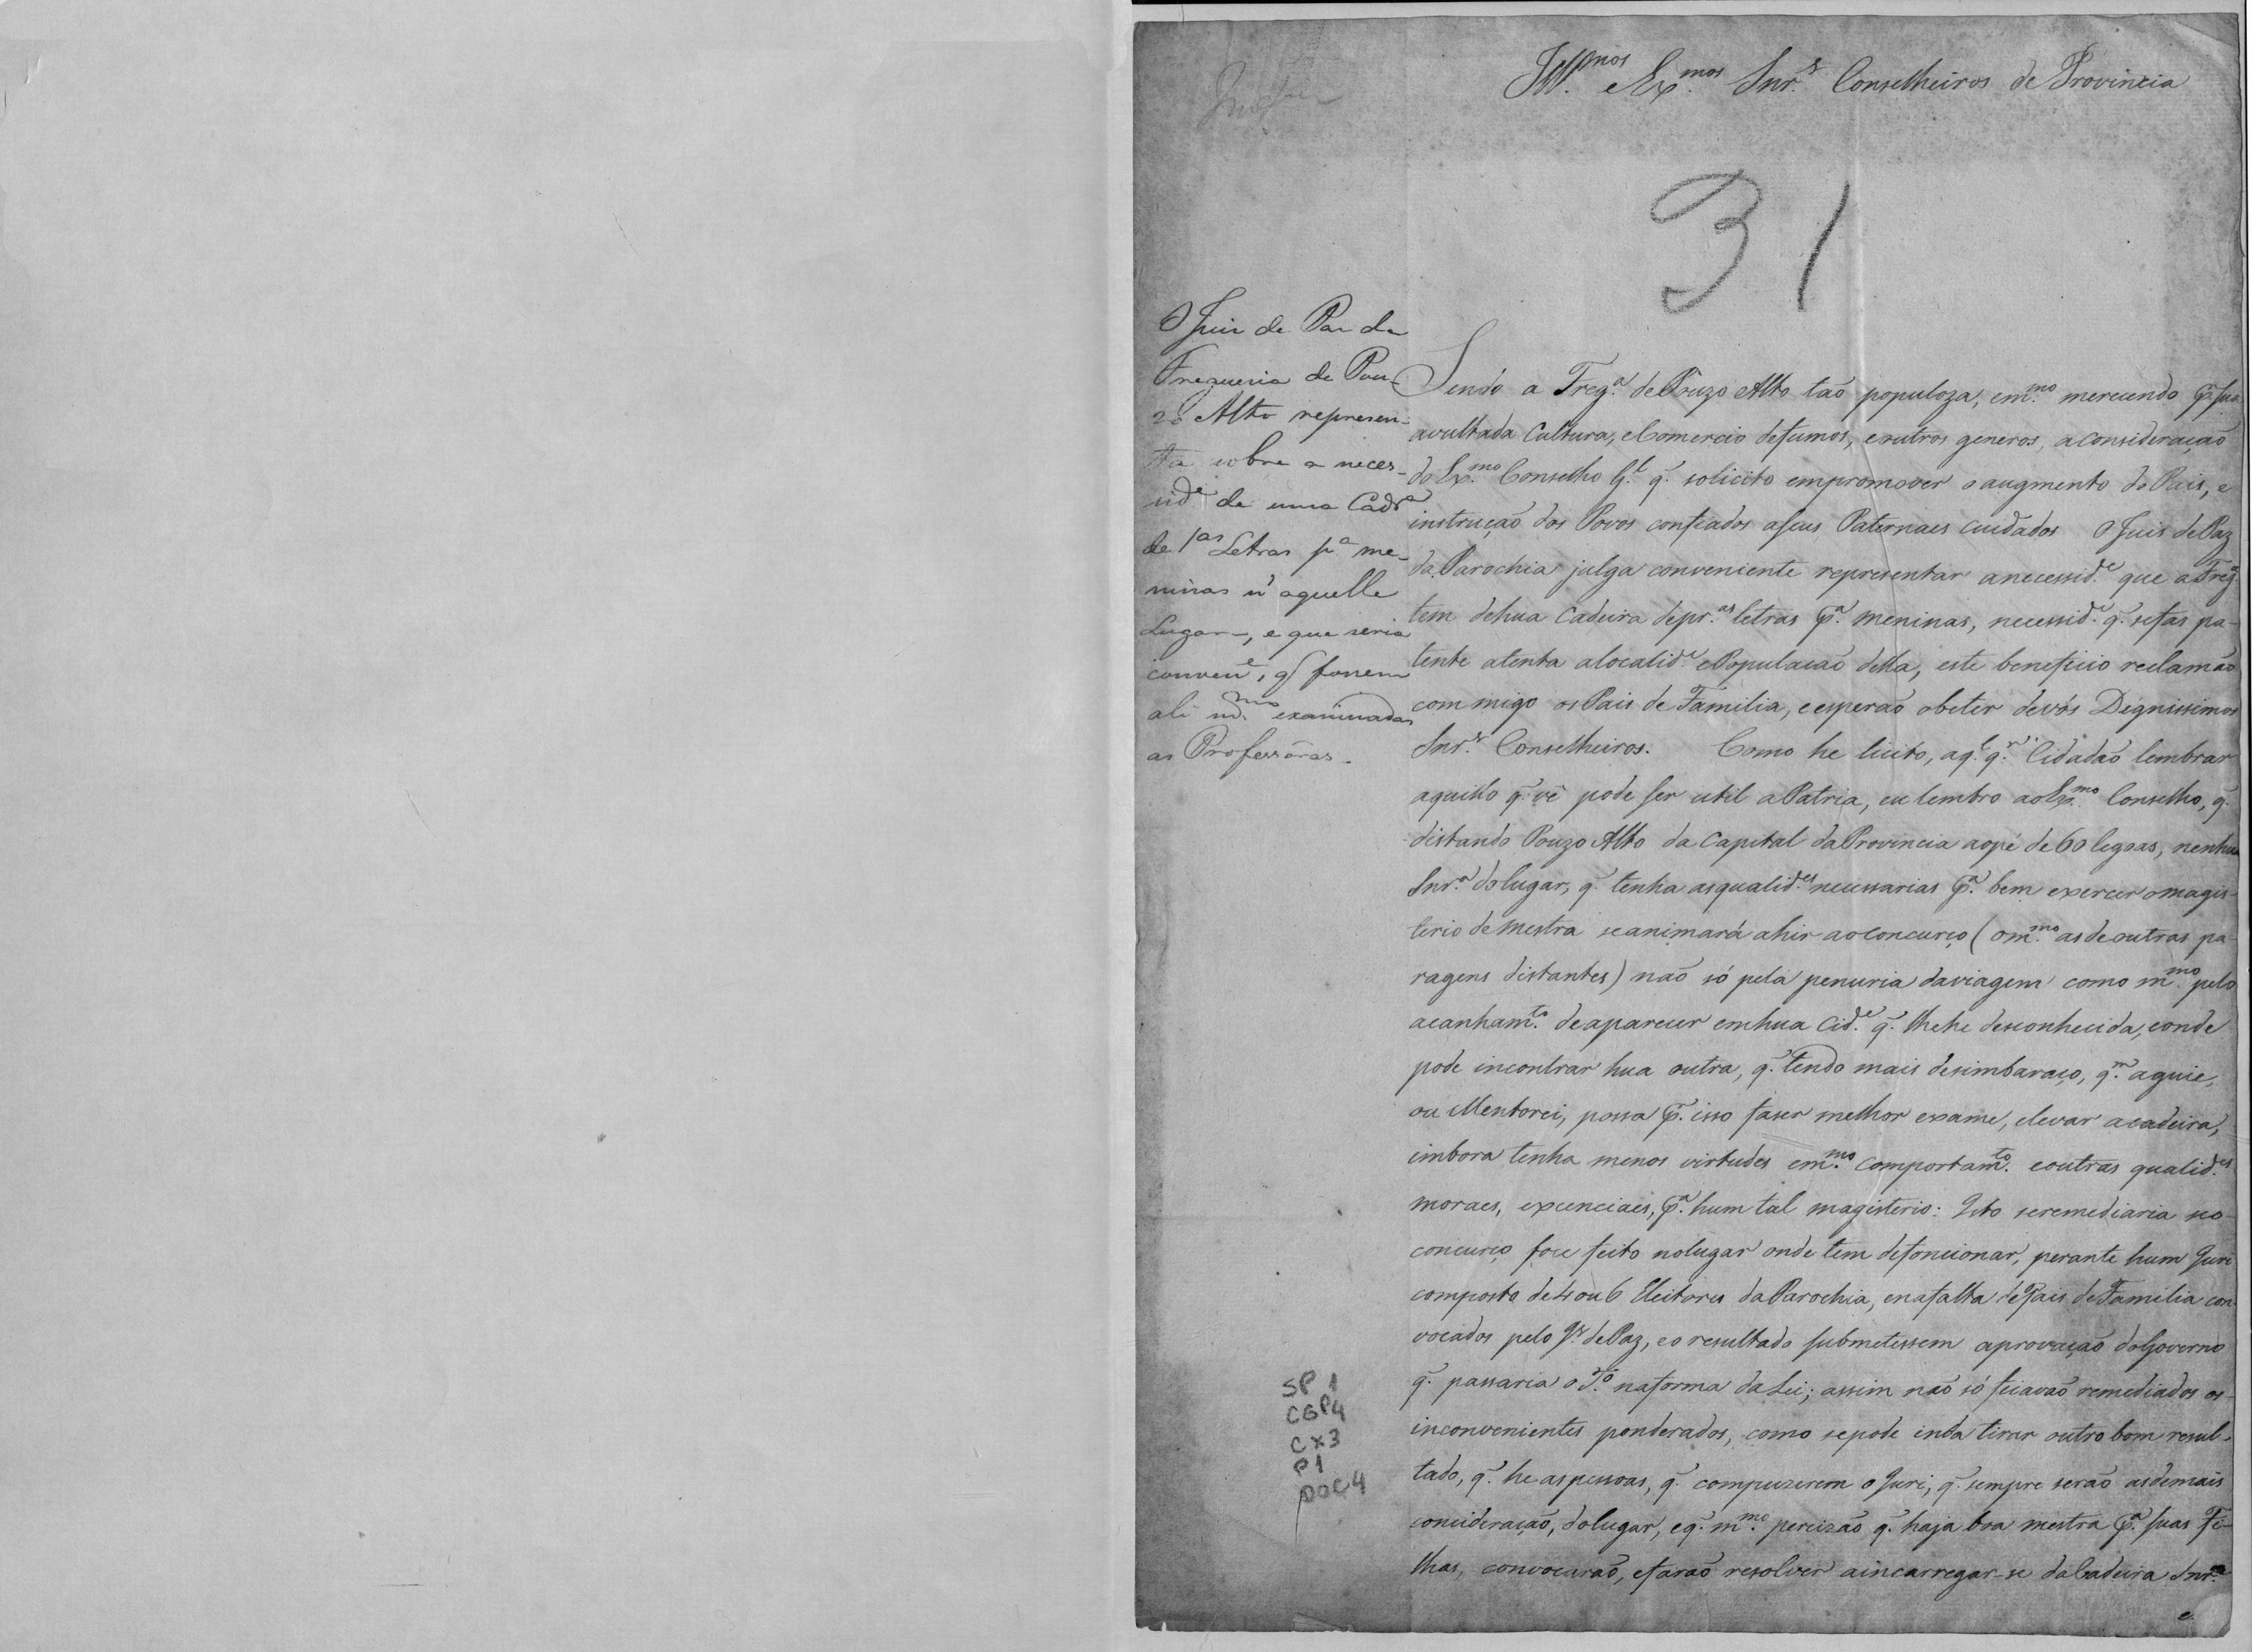 Ill.mos e Ex.mos Snr.s Conselheiros de Provincia
31
O Juiz de Paz da
Freguezia de Pou-
zo Alto represen-
ta sobre a neces-
sid.e de uma Cadr.a
de 1.as Letras p.a me-
ninas n'aquelle
Lugar, e que seria
conven.e, q̃ fossem
ali m.mo examinadas
as Professoras.
Sendo a Freg.a de Pouzo Alto taõ populoza, e m.mo merecendo p.r sua
avultada Cultura, e Comercio de fumos, e outros generos, a consideraçaõ
do Ex.mo Conselho G.l q.' solicito em promover o augmento do Pais, e
instruçaõ dos Povos confiados a seus Paternaes cuidados O Juis de Paz
da Parochia julga conveniente representar a necessid.e que a Freg.a
tem de hua Cadeira de pr.as letras p.a meninas, necessid.e q.' se fas pa-
tente atenta a localid.e e Populacaõ della, este beneficio reclamaõ
com migo os Pais de Familia, e esperaõ obeter de vós Dignissimos
Snr.s Conselheiros. Como he licito, a q.l q.r Cidadaõ lembrar
aquillo q.' vê pode ser util a Patria, eu lembro ao Ex.mo Conselho, q.'
distando Pouzo Alto da Capital da Provincia ao pé de 60 legoas, nenhua
Snr.a do lugar, q.' tenha as qualid.es necessarias p.a bem exercer o magis-
terio de Mestra se animará a hir ao concurço (o m.mo as de outras pa-
ragens distantes) naõ só pela penuria da viagem como m.mo pelo
acanham.to de aparecer em hua Cid.e q.' lhe he desconhecida, e onde
pode incontrar hua outra, q.' tendo mais desimbaraço, q.m a guie,
ou Mentorei, possa p.r isso faser melhor exame, e levar a cadeira,
imbora tenha menos virtudes e m.mo comportam.to e outras qualid.es
moraes, excenciaes, p.a hum tal magisterio: Isto se remediaria se o
concurço foce feito no lugar onde tem de foncionar, perante hum Juri
composto de 4 ou 6 Eleitores da Parochia, e na falta de Pais de Familia con-
vocados pelo J.s de Paz, e o resultado submetessem aprovaçaõ do Governo
q.' passaria o T.o na forma da Lei; assim naõ só ficavaõ remediados os
inconvenientes ponderados, como se pode inda tirar outro bom resul-
tado, q.' he as pessoas, q.' compuzerem o Juri, q.' sempre seraõ as de mais
concideraçaõ, do lugar, e q.' m.mo percizaõ q.' haja boa mestra p.a suas Fi-
lhas, convocaraõ, e faraõ resolver a incarregar-se da Cadeira Snr.a
e
SP 1
CGP4
CX3
P1
DOC4